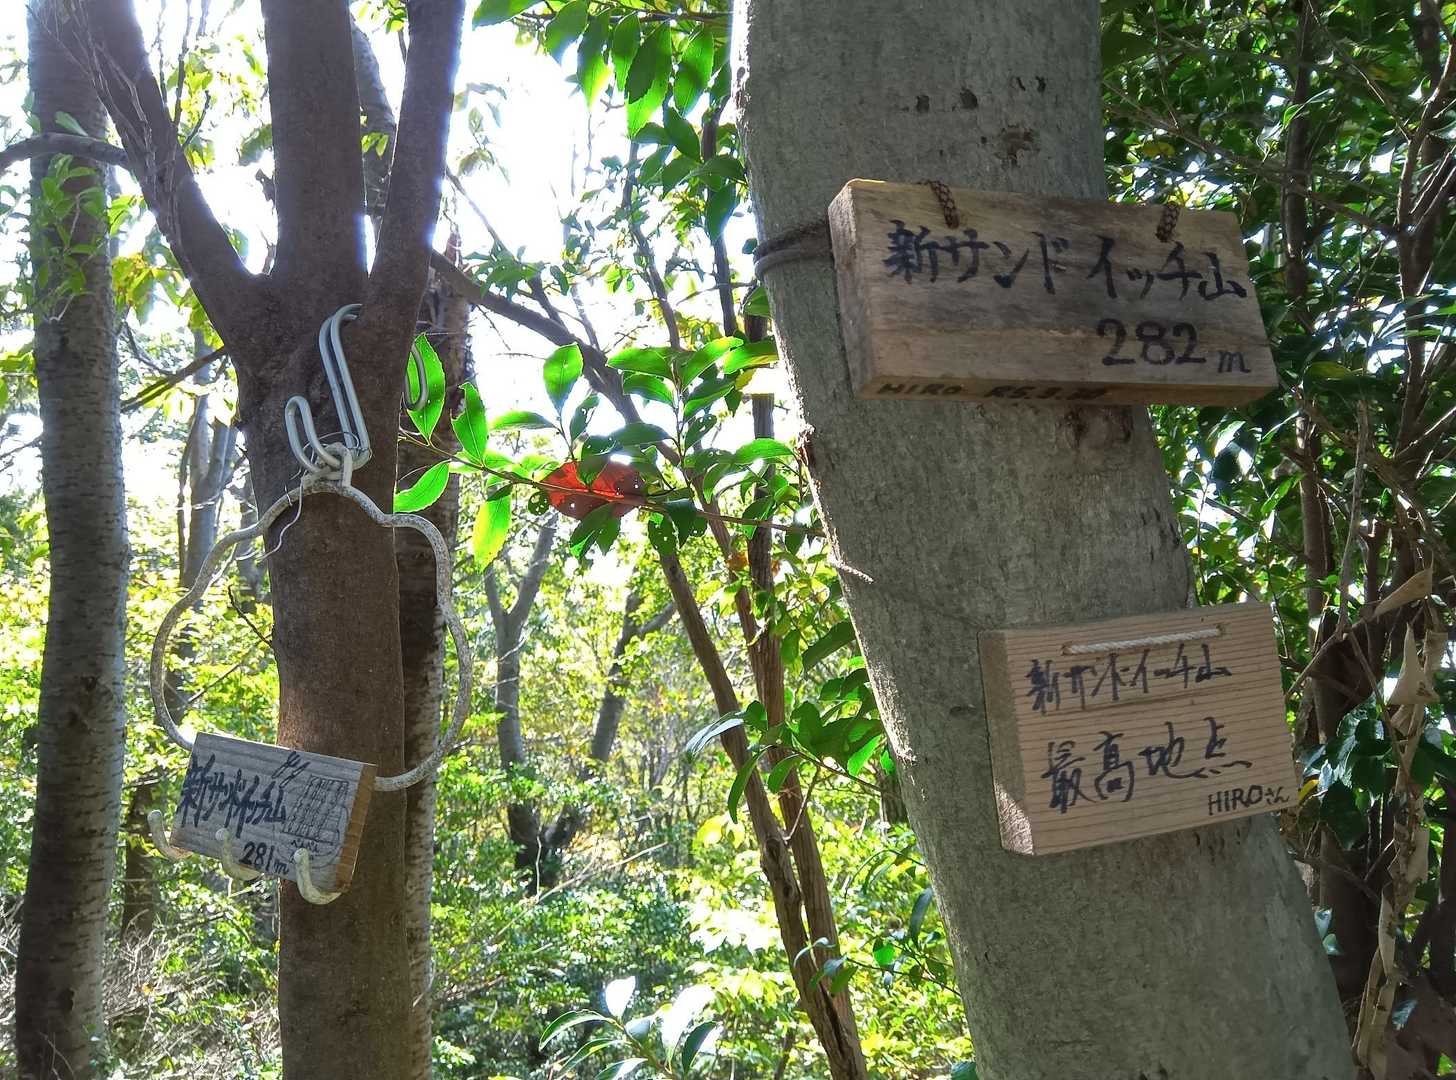 新サンドイッチ山
282m
HIRO R5.3.
新サンドイッチ山
最高地点
HIROさん
新サンドイッチ山
281m